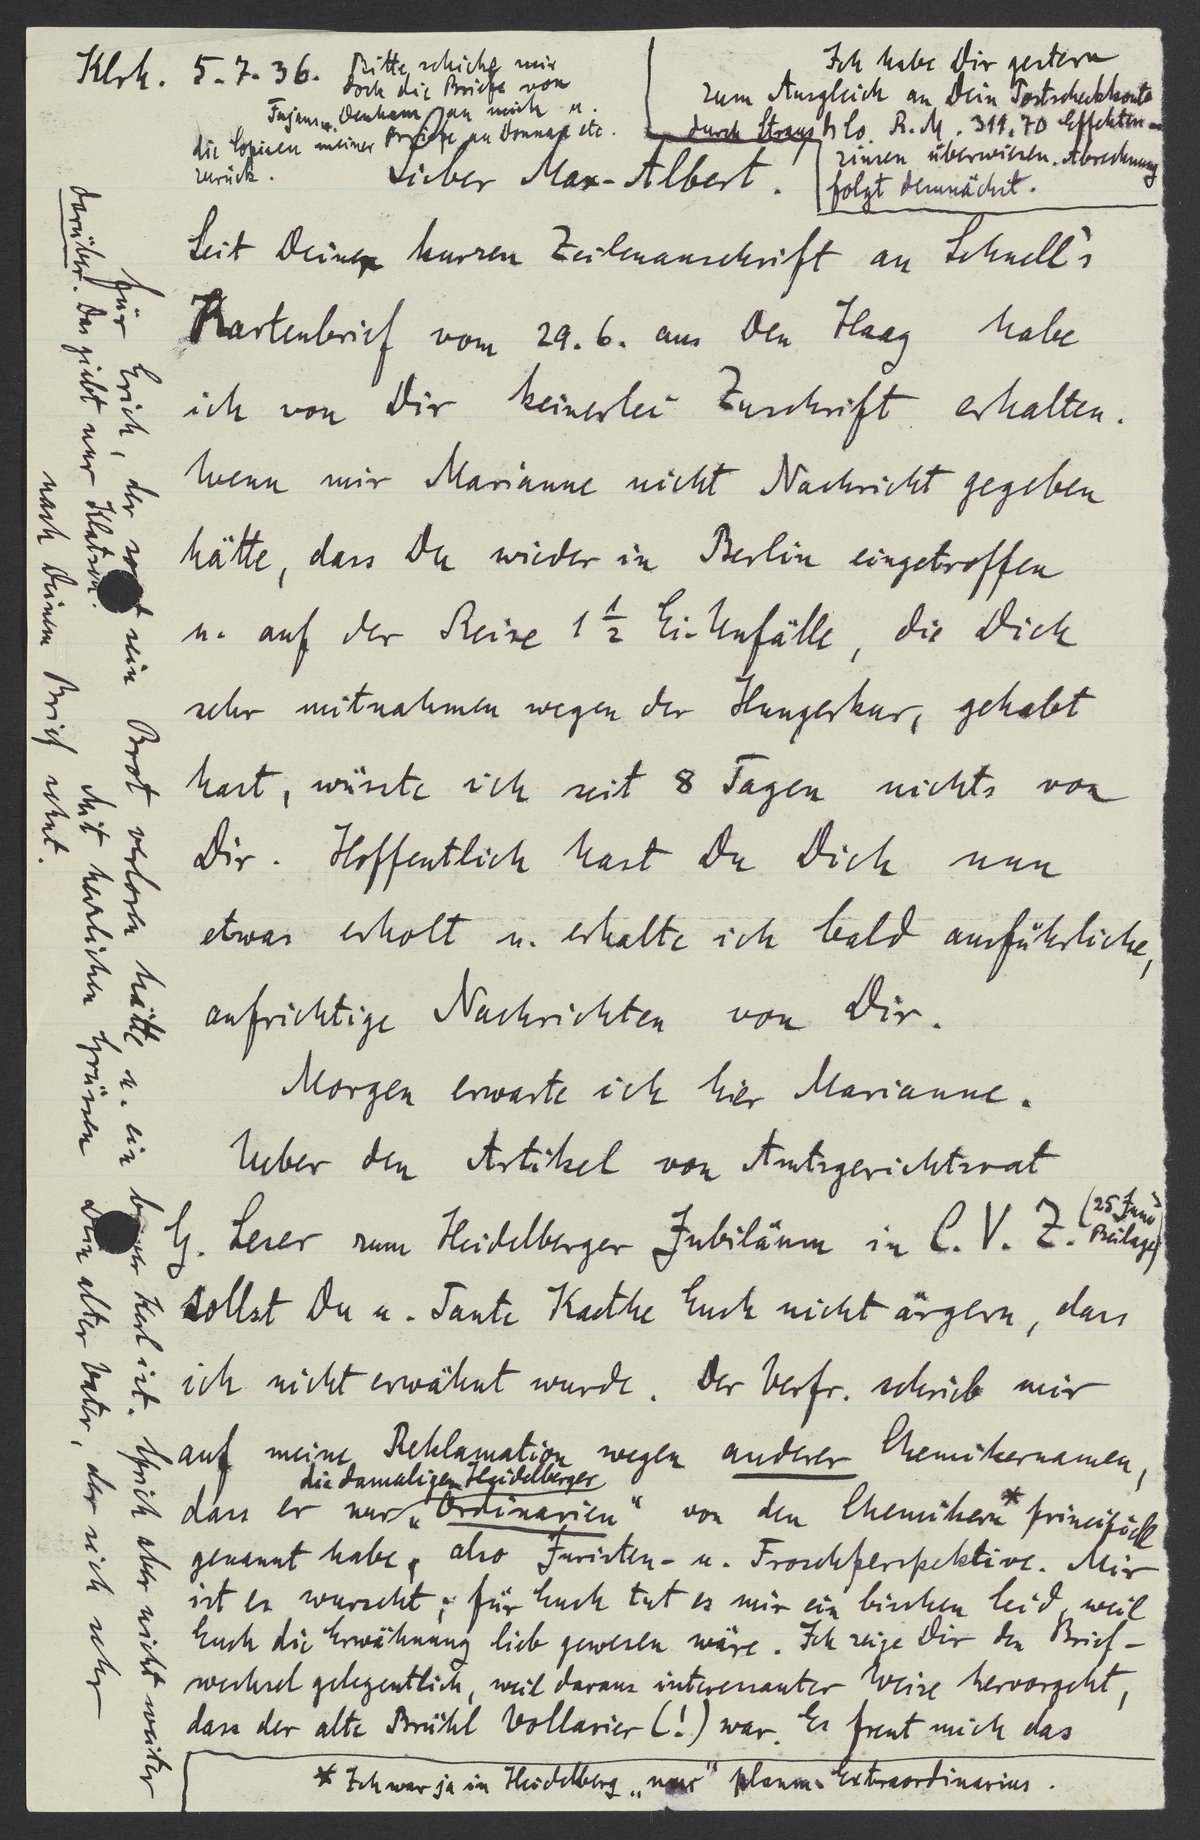 Klrh. 5.7.36.
Bitte, schicke mir
doch die Briefe von
Fajans u. Denham an mich u.
die Copien meiner Briefe an Donnan etc.
zurück.
Ich habe Dir gestern
zum Ausgleich an Dein Postscheckkonto
durch Straus & Co. R.M. 311.70 Effekten-
zinsen überwiesen. Abrechnung
folgt demnächst.
Lieber Max-Albert.
Seit Deiner kurzen Zeilenanschrift an Schnell's
Kartenbrief vom 29.6. aus Den Haag habe
ich von Dir keinerlei Zuschrift erhalten.
Wenn mir Marianne nicht Nachricht gegeben
hätte, dass Du wieder in Berlin eingetroffen
u. auf der Reise 1 1/2 Unfälle, die Dich
sehr mitnahmen wegen der Hungerkur, gehabt
hast, wüsste ich seit 8 Tagen nichts von
Dir. Hoffentlich hast Du Dich nun
etwas erholt u. erhalte ich bald ausführliche,
aufrichtige Nachrichten von Dir.
Morgen erwarte ich hier Marianne.
Ueber den Artikel von Amtsgerichtsrat
G. Leser zum Heidelberger Jubiläum in C.V.Z. (25 Juni Beilage)
sollst Du u. Tante Kaethe Euch nicht ärgern, dass
ich nicht erwähnt wurde. Der Verfr. schrieb mir
auf meine Reklamation wegen anderer Chemikernamen,
die damaligen Heidelberger
dass er nur „Ordinarien" von den Chemikern* principiell
genannt habe, also Juristen- u. Froschperspektive. Mir
ist es wurscht; für Euch tut es mir ein bischen leid, weil
Euch die Erwähnung lieb gewesen wäre. Ich zeige Dir den Brief-
wechsel gelegentlich, weil daraus interessanter Weise hervorgeht,
dass der alte Brühl Vollarier (!) war. Es freut mich das
* Ich war ja in Heidelberg „nur" planm. Extraordinarius.
für Erich, der sonst sein Brot verloren hätte u. ein braver Kerl ist. Sprich aber nicht weiter
darüber. Das giebt nur Klatsch.
Mit herzlichen Grüssen Dein alter Vater, der sich sehr
nach Deinem Brief sehnt.